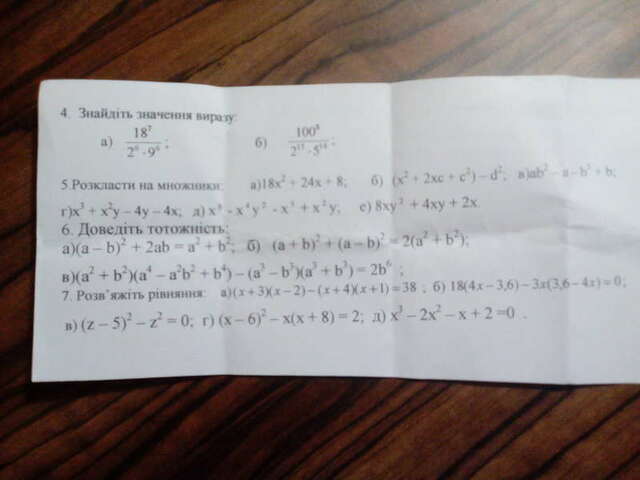 4. Знайдіть значення виразу:
а) 18⁷ / 2⁶ · 9⁶ ; б) 100⁸ / 2¹⁵ · 5¹⁴ ;
5.Розкласти на множники: а)18x² + 24x + 8; б) (x² + 2xc + c²) – d²; в)ab² – a – b³ + b;
г)x³ + x²y – 4y – 4x; д) y² - x³ + x²y; е) 8xy² + 4xy + 2x.
6. Доведіть тотожність:
а)(a – b)² + 2ab = a² + b²; б) (a + b)² + (a – b)² = 2(a² + b²);
в)(a² + b²)(a⁴ – a²b² + b⁴) – (a³ – b³)(a³ + b³) = 2b⁶ ;
7. Розв'яжіть рівняння: а)(x+3)(x–2)–(x+4)(x+1)=38 ; б) 18(4x–3,6)–3x(3,6–4x)=0;
в) (z – 5)² – z² = 0; г) (x – 6)² – x(x + 8) = 2; д) x³ – 2x² – x + 2 =0 .